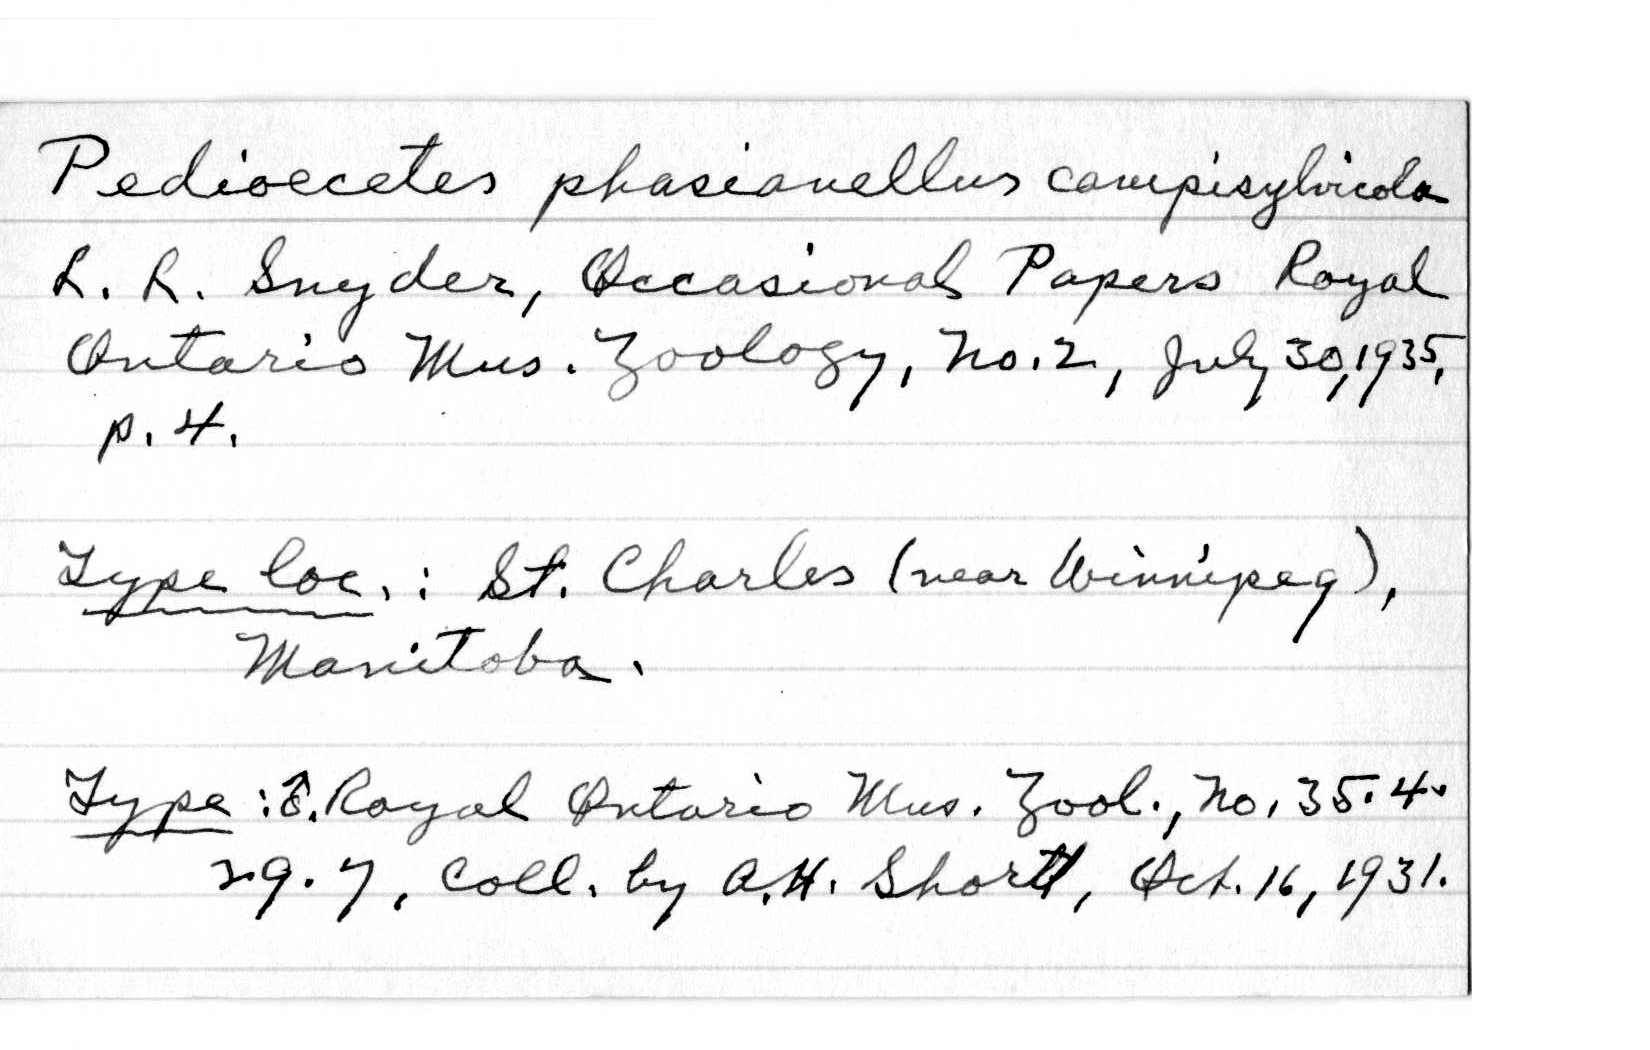 Pedioecetes phasianellus campisylvicola
L. L. Snyder, Occasional Papers Royal
Ontario Mus. Zoology, No. 2, July 30, 1935,
p. 4.
Type loc.: St. Charles (near Winnipeg),
Manitoba.
Type: Royal Ontario Mus. Zool., No. 35.4.
29.7, coll. by A.H. Shortt, Oct. 16, 1931.